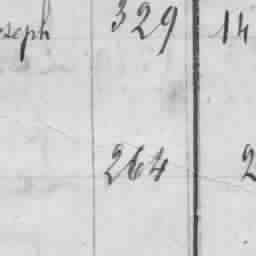 oseph 329 14
264 2